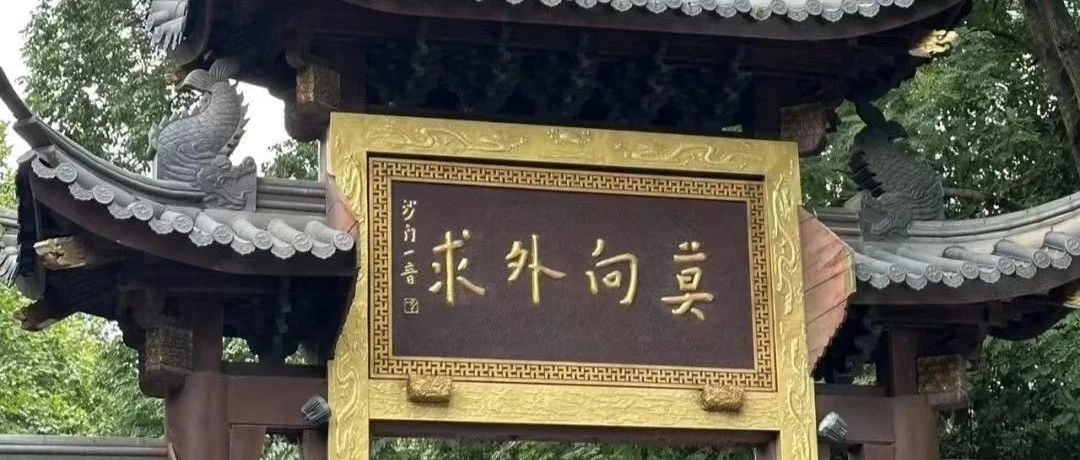 莫向外求
沙门一音